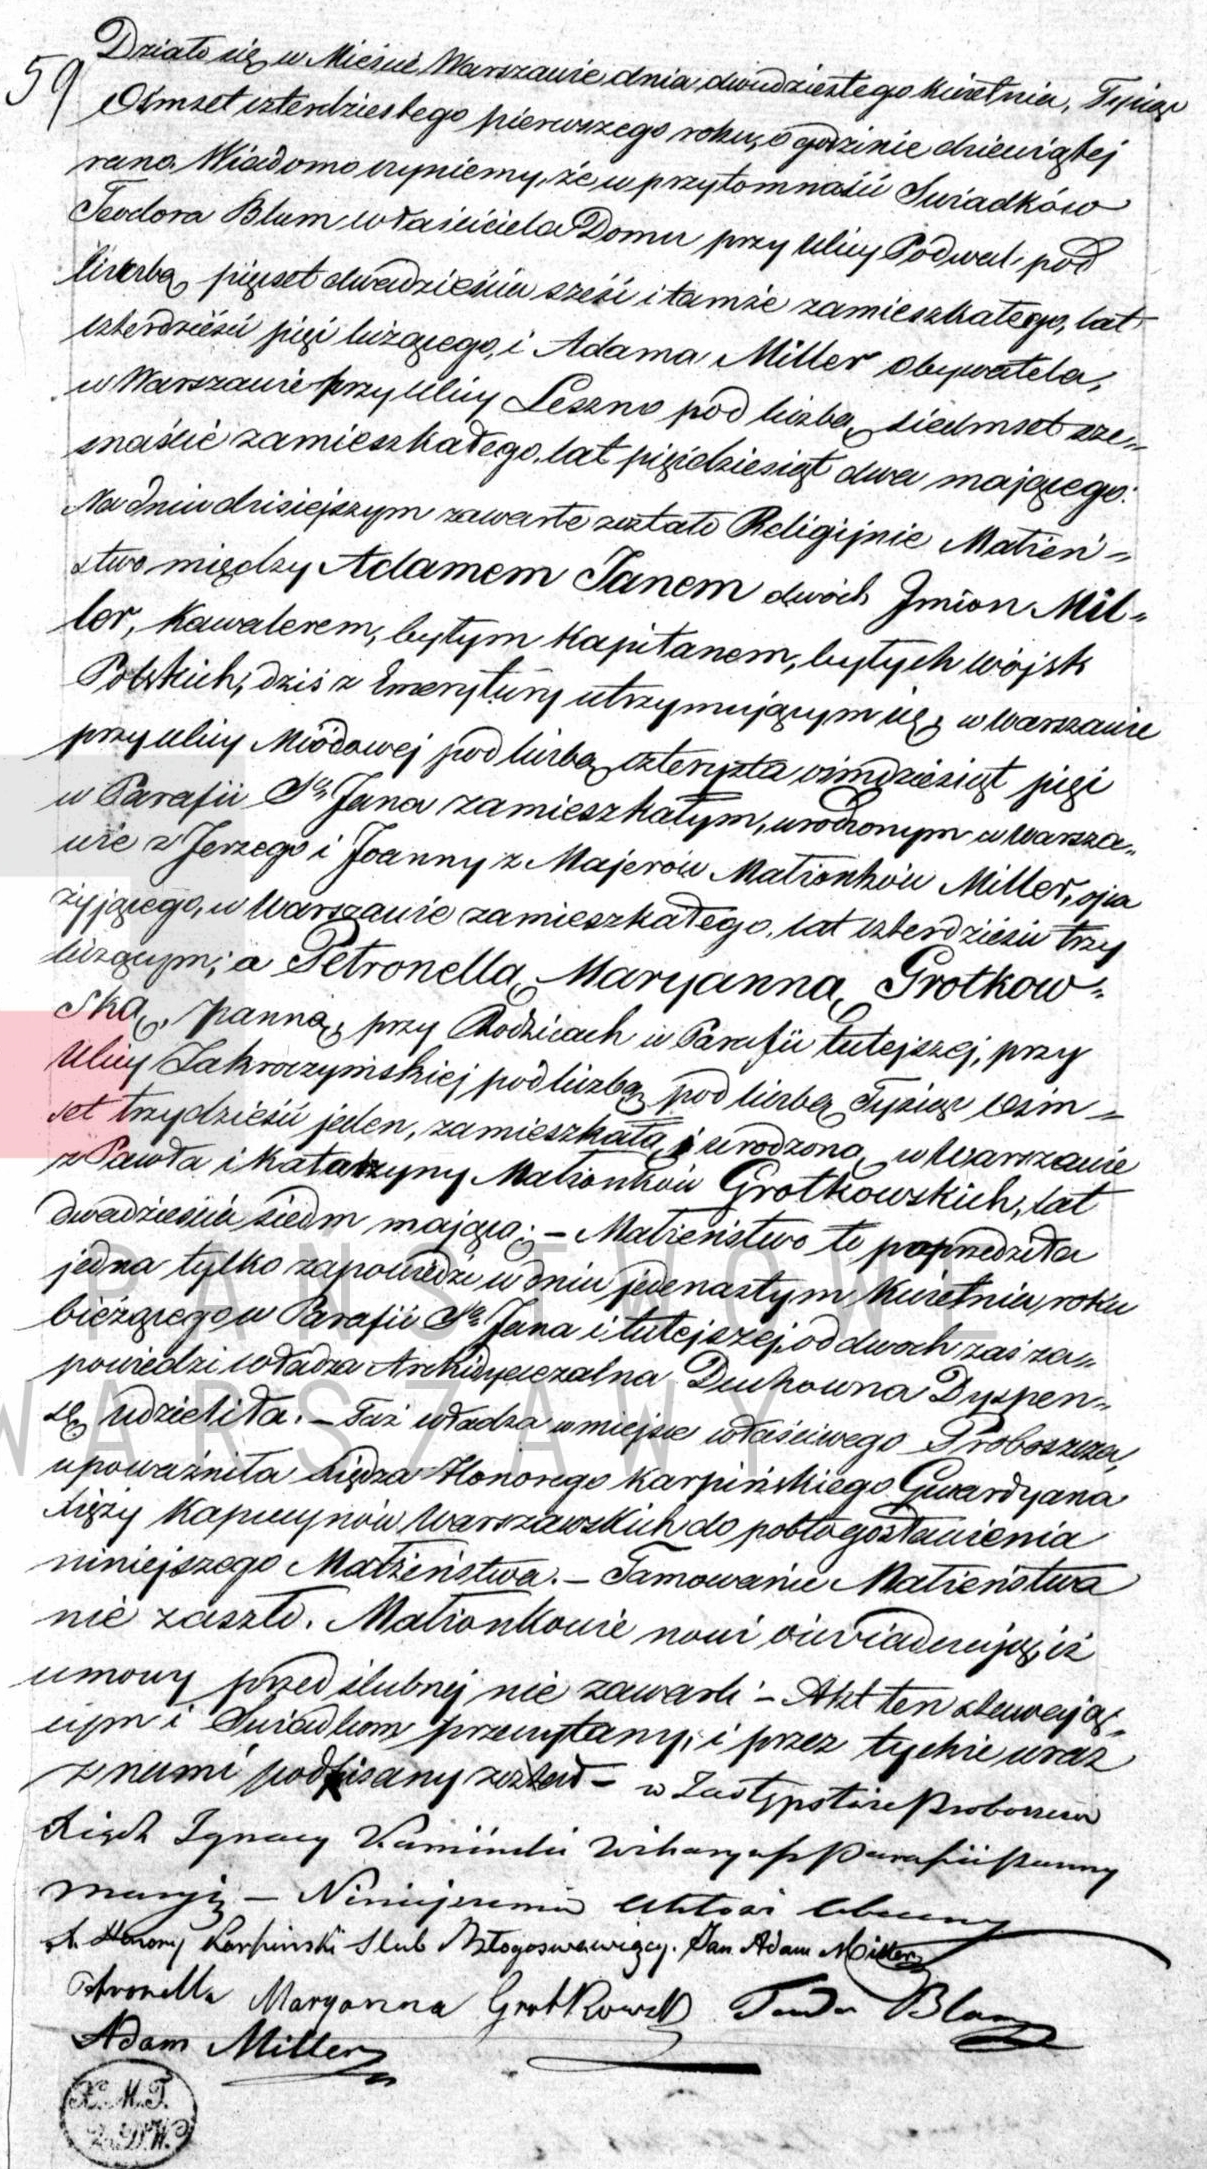 59
Działo się w Mieście Warszawie dnia dwudziestego Kwietnia, Tysiąc
Ośmset czterdziestego pierwszego roku, o godzinie dziewiątej
rano. Wiadomo czyniemy, że w przytomności Swiadków
Teodora Blum właściciela Domu przy Ulicy Podwal pod
liczbą pięćset dwadzieścia sześć i tamże zamieszkałego, lat
czterdzieści pięć liczącego, i Adama Miller Obywatela,
w Warszawie przy Ulicy Leszno pod liczbą siedmset sze=
snaście zamieszkałego, lat pięćdziesiąt dwa mającego:
Na dniu dzisiejszym zawarte zostało Religijnie Małżeń=
stwo między Adamem Janem dwóch Jmion Mil=
ler, Kawalerem, byłym Kapitanem, byłych wojsk
Polskich, dziś z Emerytury utrzymującym się, w Warszawie
przy ulicy Miodowej pod liczbą czterysta ośmdziesiąt pięć
w Parafii Sgo Jana zamieszkałym, urodzonym w Warsza=
wie z Jerzego i Joanny z Majerów Małżonków Miller, ojca
żyjącego, w Warszawie zamieszkałego, lat czterdzieści trzy
liczącym; a Petronellą Maryanną Grotkow=
ską, panną, przy Rodzicach w Parafii tutejszej, przy
Ulicy Zakroczymskiej pod liczbą pod liczbą Tysiąc Ośm=
set trzydzieści jeden, zamieszkałą, i urodzoną w Warszawie
z Pawła i Katarzyny Małżonków Grotkowskich, lat
dwadzieścia siedm mającą; – Małżeństwo to poprzedziła
jedna tylko zapowiedź w dniu jedenastym Kwietnia roku
bieżącego w Parafii Sgo Jana i tutejszej, od dwóch zaś za=
powiedzi władza Archidyecezalna Duchowna Dyspen=
sę udzieliła. – Taż władza w miejsce właściwego Proboszcza,
upoważniła Xiędza Honorego Karpińskiego Gwardyana
Xięży Kapucynów Warszawskich do pobłogosławienia
niniejszego Małżeństwa. – Tamowanie Małżeństwa
nie zaszło. Małżonkowie nowi oświadczają, iż
umowy przedślubnej nie zawarli – Akt ten stawają=
cym i Swiadkom przeczytany, i przez tychże wraz
z nami podpisany został – w Zastępstwie Proboszcza
Xiądz Ignacy Kamiński Wikaryusz Parafii Panny
Maryi – Niniejszemu Aktowi Obecny
X. Honory Karpiński Slub Błogosławiący. Jan Adam Miller
Petronella Maryanna Grotkowska Teodor Blum
Adam Miller
X. M. T.